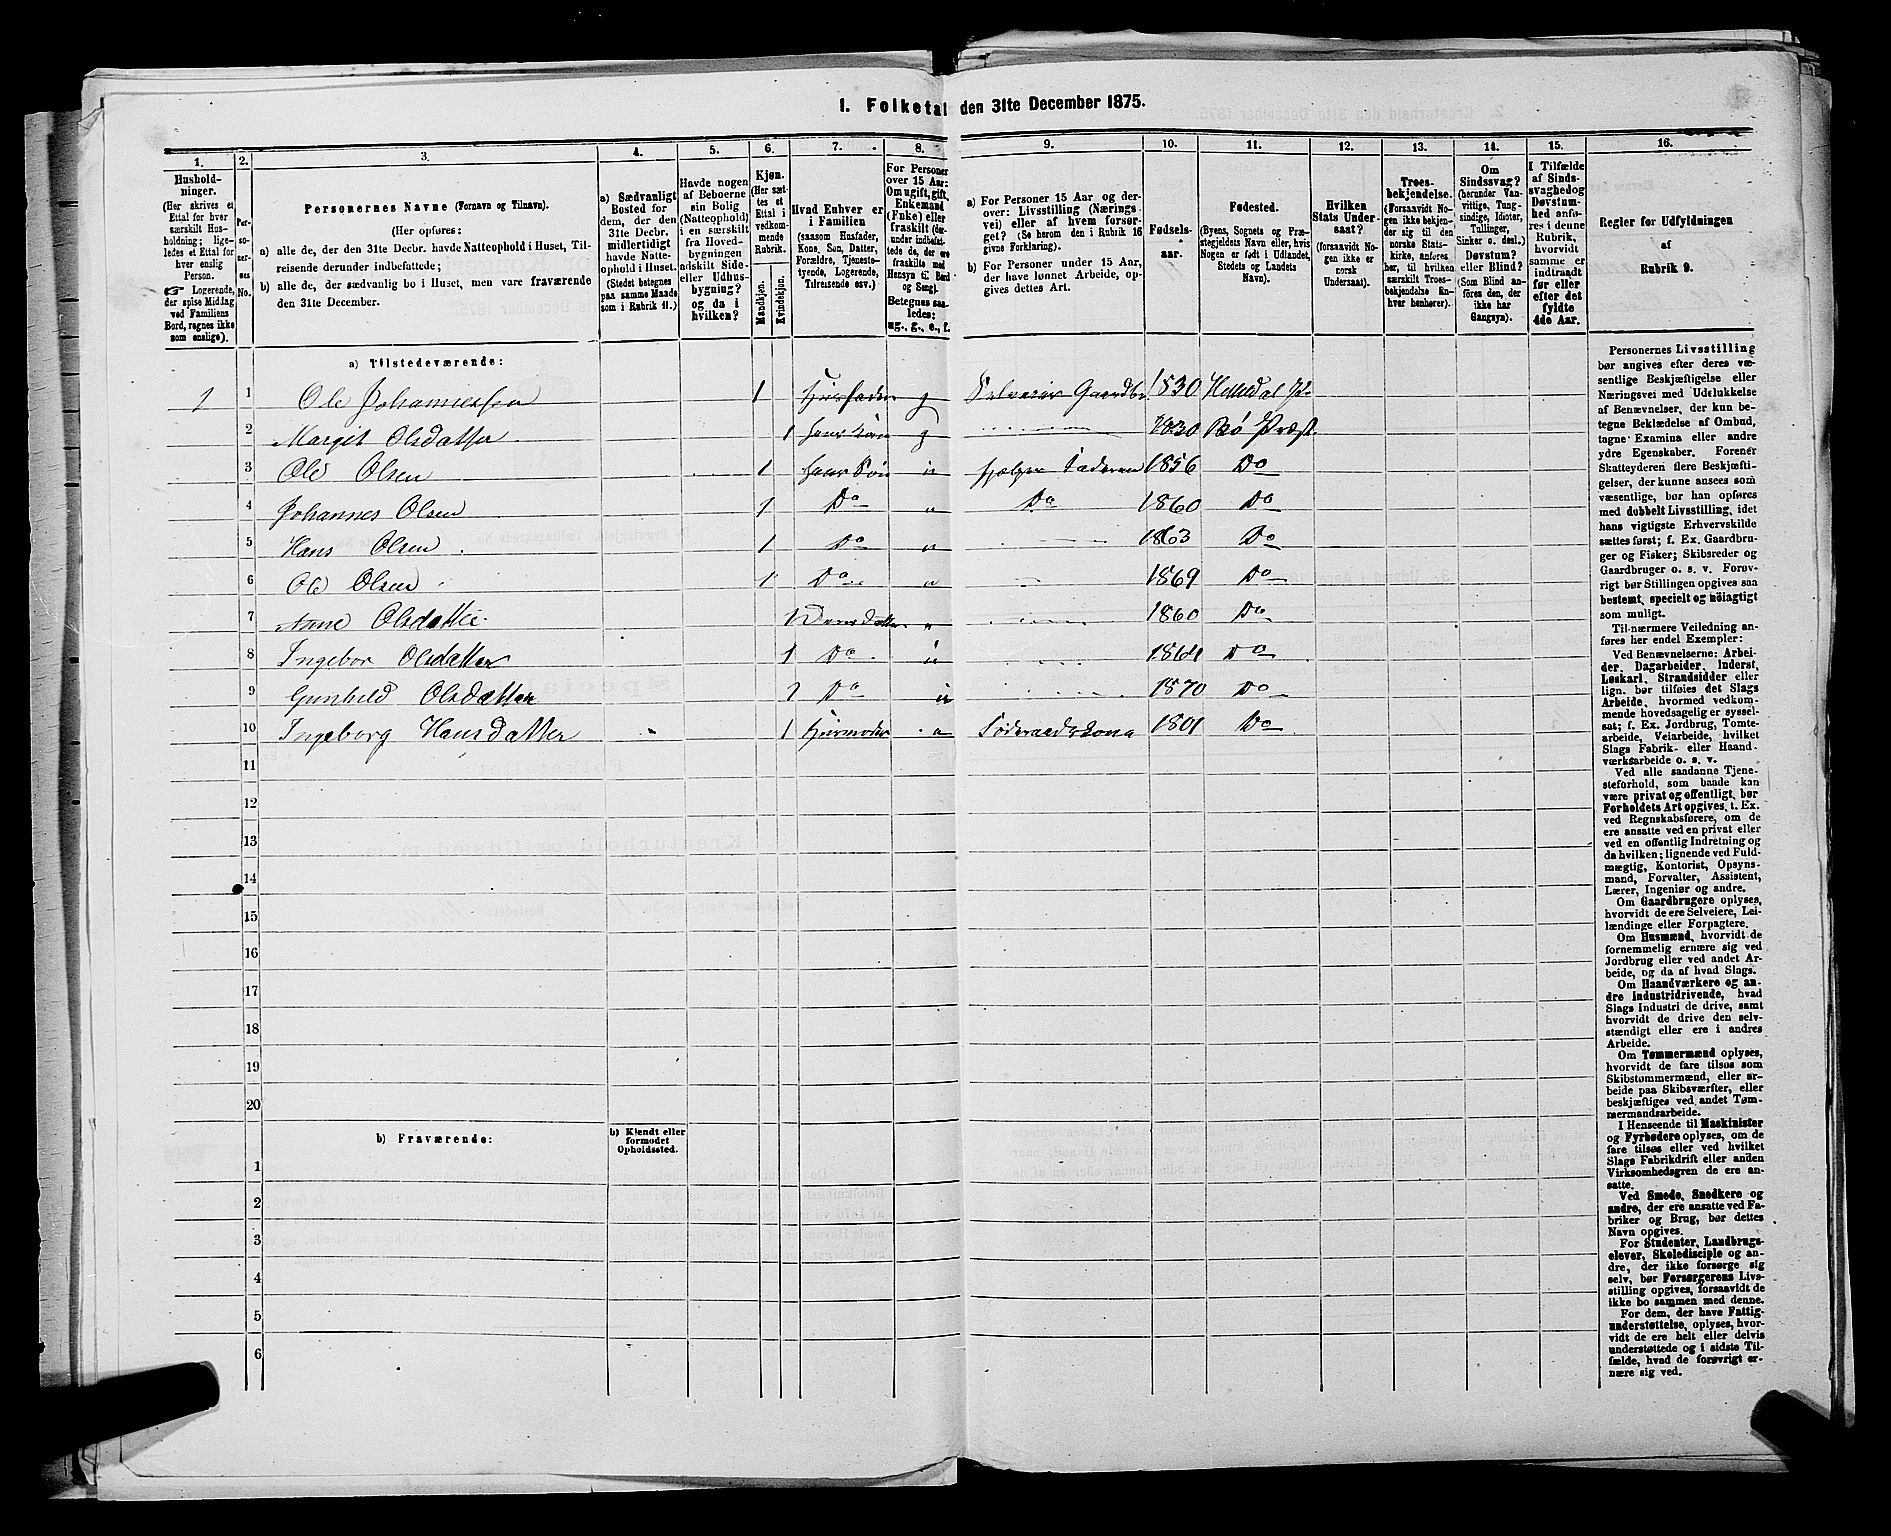 I. Folketal den 31te December 1875.
1. 2. 3. 4. 5. 6. 7. 8. 9. 10. 11. 12. 13. 14. 15. 16.
Hushold-
ninger.
(Her skrives et
Ettal for hver
særskilt Hus-
holdning; lige-
ledes et Ettal for
hver enslig
Person.
☞ Logerende,
der spise Middag
ved Familiens
Bord, regnes ikke
som enslige).
Per-
so-
ner-
nes
No.
Personernes Navne (Fornavn og Tilnavn).
(Her opføres:
a) alle de, der den 31te Decbr. havde Natteophold i Huset, Til-
reisende derunder indbefattede;
b) alle de, der sædvanlig bo i Huset, men vare fraværende
den 31te December.
a) Sædvanligt
Bosted for
dem, der den
31te Decbr.
midlertidigt
havde Natte-
ophold i Huset.
(Stedet betegnes
paa samme Maade
som i Rubrik 11.)
Havde nogen
af Beboerne
sin Bolig
(Natteophold)
i en særskilt
fra Hoved-
bygningen
adskilt Side-
eller Udhus-
bygning?
og da i
hvilken?
Kjøn.
(Her sæt-
tes et
Ettal i
vedkom-
mende
Rubrik.
Mandkjøn.
Kvindekjøn.
Hvad Enhver er
i Familien
(saasom Husfader,
Kone, Søn, Datter,
Forældre, Tjeneste-
tyende, Logerende,
Tilreisende osv.)
For Personer
over 15 Aar:
Om ugift, gift,
Enkemand
(Enke) eller
fraskilt (der-
under indbefat-
tede de, der ere
fraskilte med
Hensyn til Bord
og Seng).
Betegnes saa-
ledes:
ug., g., e., f.
a) For Personer 15 Aar og der-
over: Livsstilling (Nærings-
vei) eller af hvem forsør-
get? (Se herom den i Rubrik 16
givne Forklaring).
b) For Personer under 15 Aar,
der have lønnet Arbeide, op-
gives dettes Art.
Fødsels-
aar.
Fødested.
(Byens, Sognets og Præ-
stegjeldets Navn eller, hvis
Nogen er født i Udlandet,
Stedets og Landets
Navn).
Hvilken
Stats Under-
saat?
(forsaavidt No-
gen ikke er
norsk
Undersaat).
Troes-
bekjendelse.
(Forsaavidt No-
gen ikke bekjen-
der sig til den
norske Stats-
kirke, anføres
her, til hvilken
særskilt Troes-
bekjendelse En-
hver henhører).
Om
Sindssvag?
(herunder Van-
vittige, Tung-
sindige, Idioter,
Tullinger,
Sinker o. desl.)
Døvstum?
eller Blind?
(Som Blind an-
føres den, der
ikke har
Gangsyn).
I Tilfælde
af Sinds-
svaghed og
Døvstum-
hed anfø-
res i denne
Rubrik,
hvorvidt
samme er
indtraadt
før eller
efter det
fyldte
4de Aar.
Regler for Udfyldningen
af
Rubrik 9.
a) Tilstedeværende:
1 1 Ole Johannessen 1 Husfader g Selveier Gaardbr. 1830 Hitterdal Pr
2 Margit Olsdatter 1 hans Kone g 1830 Bø Præst.
3 Ole Olsen 1 hans Søn u hjælper Faderen 1856 Do
4 Johannes Olsen 1 Do Do 1860 Do
5 Hans Olsen 1 Do 1863 Do
6 Ole Olsen 1 Do 1869 Do
7 Anne Olsdatter 1 1860 Do
8 Ingebor Olsdatter 1 Do 1864 Do
9 Gunhild Olsdatter 1 Do 1870 Do
10 Ingeborg Hansdatter 1 Husmoder Føderaadskona 1801 Do
11
12
13
14
15
16
17
18
19
20
b) Fraværende:
b) Kjendt eller
formodet
Opholdssted.
1
2
3
4
5
6
Personernes Livsstilling
bør angives efter deres væ-
sentlige Beskjæftigelse eller
Næringsvei med Udelukkelse
af Benævnelser, der kun be-
tegne Beklædelse af Ombud,
tagne Examina eller andre
ydre Egenskaber. Forener
Skatteyderen flere Beskjæfti-
gelser, der kunne ansees som
væsentlige, bør han opføres
med dobbelt Livsstilling, idet
hans vigtigste Erhvervskilde
sættes først; f. Ex. Gaardbru-
ger og Fisker; Skibsreder og
Gaardbruger o. s. v. Forøv-
rigt bør Stillingen opgives saa
bestemt, specielt og nöiagtigt
som muligt.
Til nærmere Veiledning an-
føres her endel Exempler:
Ved Benævnelserne: Arbei-
der, Dagarbeider, Inderst,
Løskarl, Strandsidder eller
lign. bør tilføies det Slags
Arbeide, hvormed vedkom-
mende hovedsagelig er syssel-
sat; f. Ex. Jordbrug, Tomte-
arbeide, Veiarbeide, hvilket
Slags Fabrik- eller Haand-
værksarbeide o. s. v.
Ved alle saadanne Tjene-
steforhold, som baade kan
være privat og offentligt, bør
Forholdets Art opgives, t. Ex.
ved Regnskabsførere, om de
ere ansatte ved en privat eller
ved en offentlig Indretning og
da hvilken; lignende ved Fuld-
mægtig, Kontorist, Opsyns-
mand, Forvalter, Assistent,
Lærer, Ingeniør og andre.
Om Gaardbrugere oplyses,
hvorvidt de ere Selveiere, Lei-
lændinge eller Forpagtere.
Om Husmænd, hvorvidt de
fornemmelig ernære sig ved
Jordbrug eller ved andet Ar-
beide, og da af hvad Slags.
Om Haandværkere og an-
dre Industridrivende, hvad
Slags Industri de drive, samt
hvorvidt de drive den selv-
stændigt eller ere i andres
Arbeide.
Om Tømmermænd oplyses,
hvorvidt de fare tilsøs som
Skibstømmermænd, eller ar-
beide paa Skibsværfter, eller
beskjæftiges ved andet Tøm-
mermandsarbeide.
I Henseende til Maskinister
og Fyrbødere oplyses, om de
fare tilsøs eller ved hvilket
Slags Fabrikdrift eller anden
Virksomhedsgren de ere an-
satte.
Ved Smede, Snedkere og
andre, der ere ansatte ved Fa-
briker og Brug, bør dettes
Navn opgives.
For Studenter, Landbrugs-
elever, Skoledisciple og an-
dre, der ikke forsørge sig
selv, bør Forsørgerens Livs-
stilling opgives, forsaavidt de
ikke bo sammen med denne.
For dem, der have Fattig-
understøttelse, oplyses, hvor-
vidt de ere helt eller delvis
understøttede og i sidste Til-
fælde, hvad de forøvrigt er-
nære sig ved.